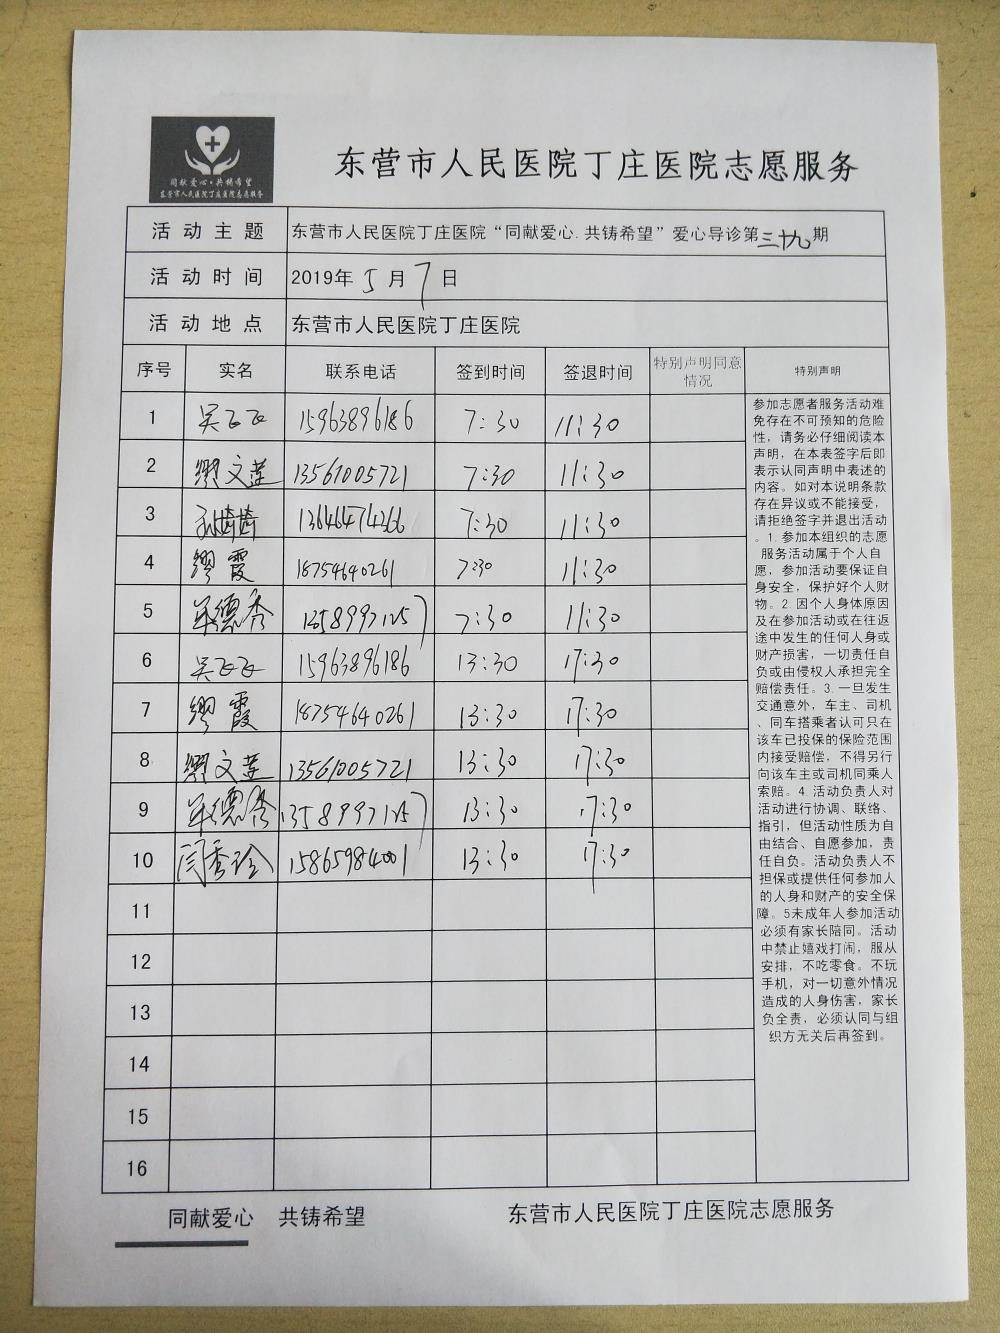 同献爱心·共铸希望
东营市人民医院丁庄医院志愿服务
东营市人民医院丁庄医院志愿服务
活动主题 东营市人民医院丁庄医院“同献爱心.共铸希望”爱心导诊第三十九期
活动时间 2019年5月7日
活动地点 东营市人民医院丁庄医院
序号 实名 联系电话 签到时间 签退时间 特别声明同意情况 特别声明
1 吴飞飞 15963896186 7:30 11:30
2 缪文莲 13561005721 7:30 11:30
3 7:30 11:30
4 缪霞 18754640261 7:30 11:30
5 单德秀 7:30 11:30
6 吴飞飞 15963896186 13:30 17:30
7 缪霞 18754640261 13:30 17:30
8 缪文莲 13561005721 13:30 17:30
9 单德秀 13:30 17:30
10 闫秀珍 15865984001 13:30 17:30
11
12
13
14
15
16
参加志愿者服务活动难
免存在不可预知的危险
性，请务必仔细阅读本
声明，在本表签字后即
表示认同声明中表述的
内容。如对本说明条款
存在异议或不能接受，
请拒绝签字并退出活动
。1.参加本组织的志愿
服务活动属于个人自
愿，参加活动要保证自
身安全，保护好个人财
物。2.因个人身体原因
及在参加活动或在往返
途中发生的任何人身或
财产损害，一切责任自
负或由侵权人承担完全
赔偿责任。3.一旦发生
交通意外，车主、司机
、同车搭乘者认可只在
该车已投保的保险范围
内接受赔偿，不得另行
向该车主或司机同乘人
索赔。4.活动负责人对
活动进行协调、联络、
指引，但活动性质为自
由结合、自愿参加，责
任自负。活动负责人不
担保或提供任何参加人
的人身和财产的安全保
障。5未成年人参加活动
必须有家长陪同。活动
中禁止嬉戏打闹，服从
安排，不吃零食。不玩
手机，对一切意外情况
造成的人身伤害，家长
负全责，必须认同与组
织方无关后再签到。
同献爱心 共铸希望 东营市人民医院丁庄医院志愿服务